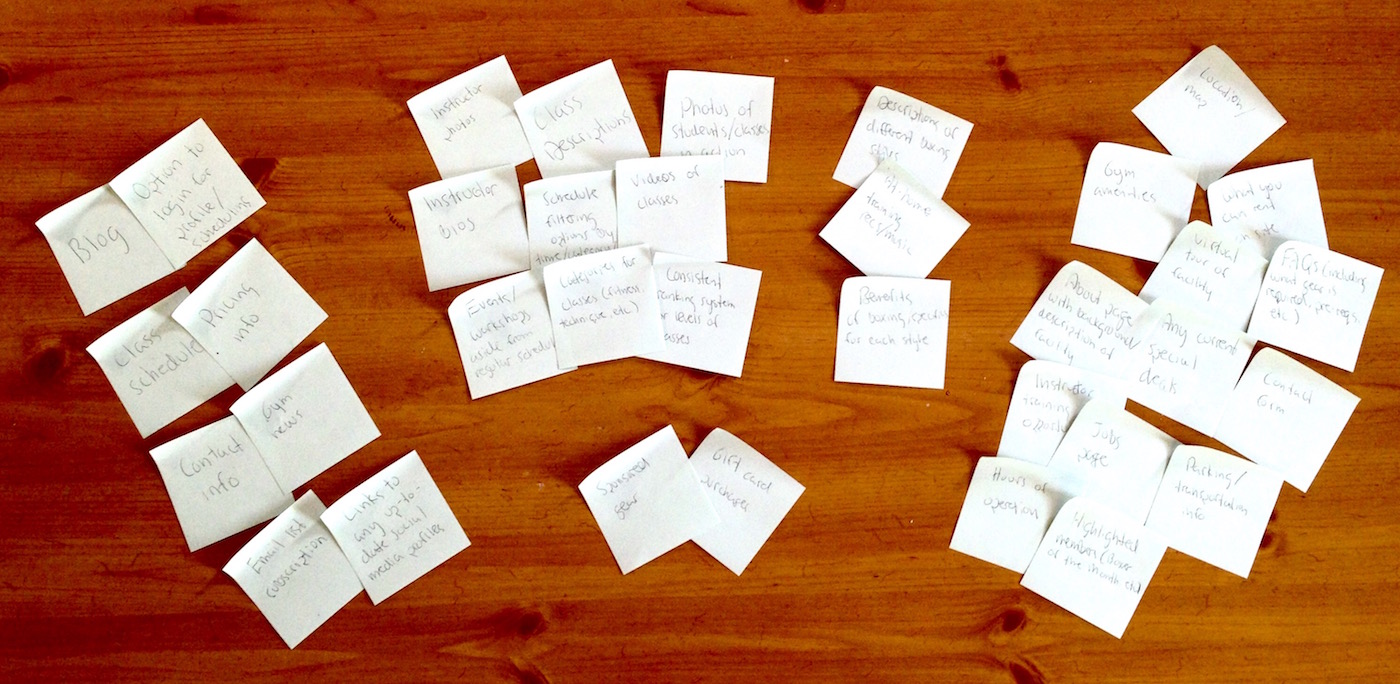 Blog
Option to
login for
profile/
scheduling
Class
Schedule
Pricing
info
Contact
info
Gym
news
Email list
subscription
Links to
any up-to-
date social
media profiles
Instructor
photos
Class
Descriptions
Photos of
students/classes
in action
Instructor
bios
Schedule
filtering
options by
time/category
Videos of
classes
Events/
workshops
aside from
regular schedule
Categories for
classes (fitness,
technique, etc.)
Consistent
ranking system
for levels of
classes
Sponsored
gear
Gift card
purchases
Descriptions of
different boxing
styles
At-home
training
recs/music
Benefits
of boxing, specific
for each style
Location/
map
Gym
amenities
What you
can rent
Virtual
tour of
facility
FAQs (including
what gear is
required, prereqs,
etc.)
About page
with background/
description of
facility
Any current
special
deals
Contact
form
Instructor
training
Jobs
page
Parking/
transportation
info
Hours of
operation
Highlighted
member (boxer
of the month etc)